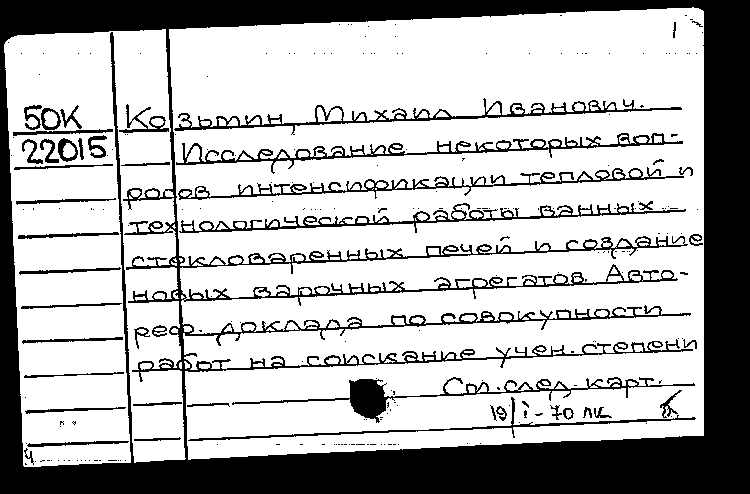 1
50К Козьмин, Михаил Иванович.
22015 Исследование некоторых воп-
росов интенсификации тепловой и
технологической работы ванных
стекловаренных печей и создание
новых варочных агрегатов. Авто-
реф. доклада по совокупности
работ на соискание учен. степени
См. след. карт.
19/I-70 лк
Ч